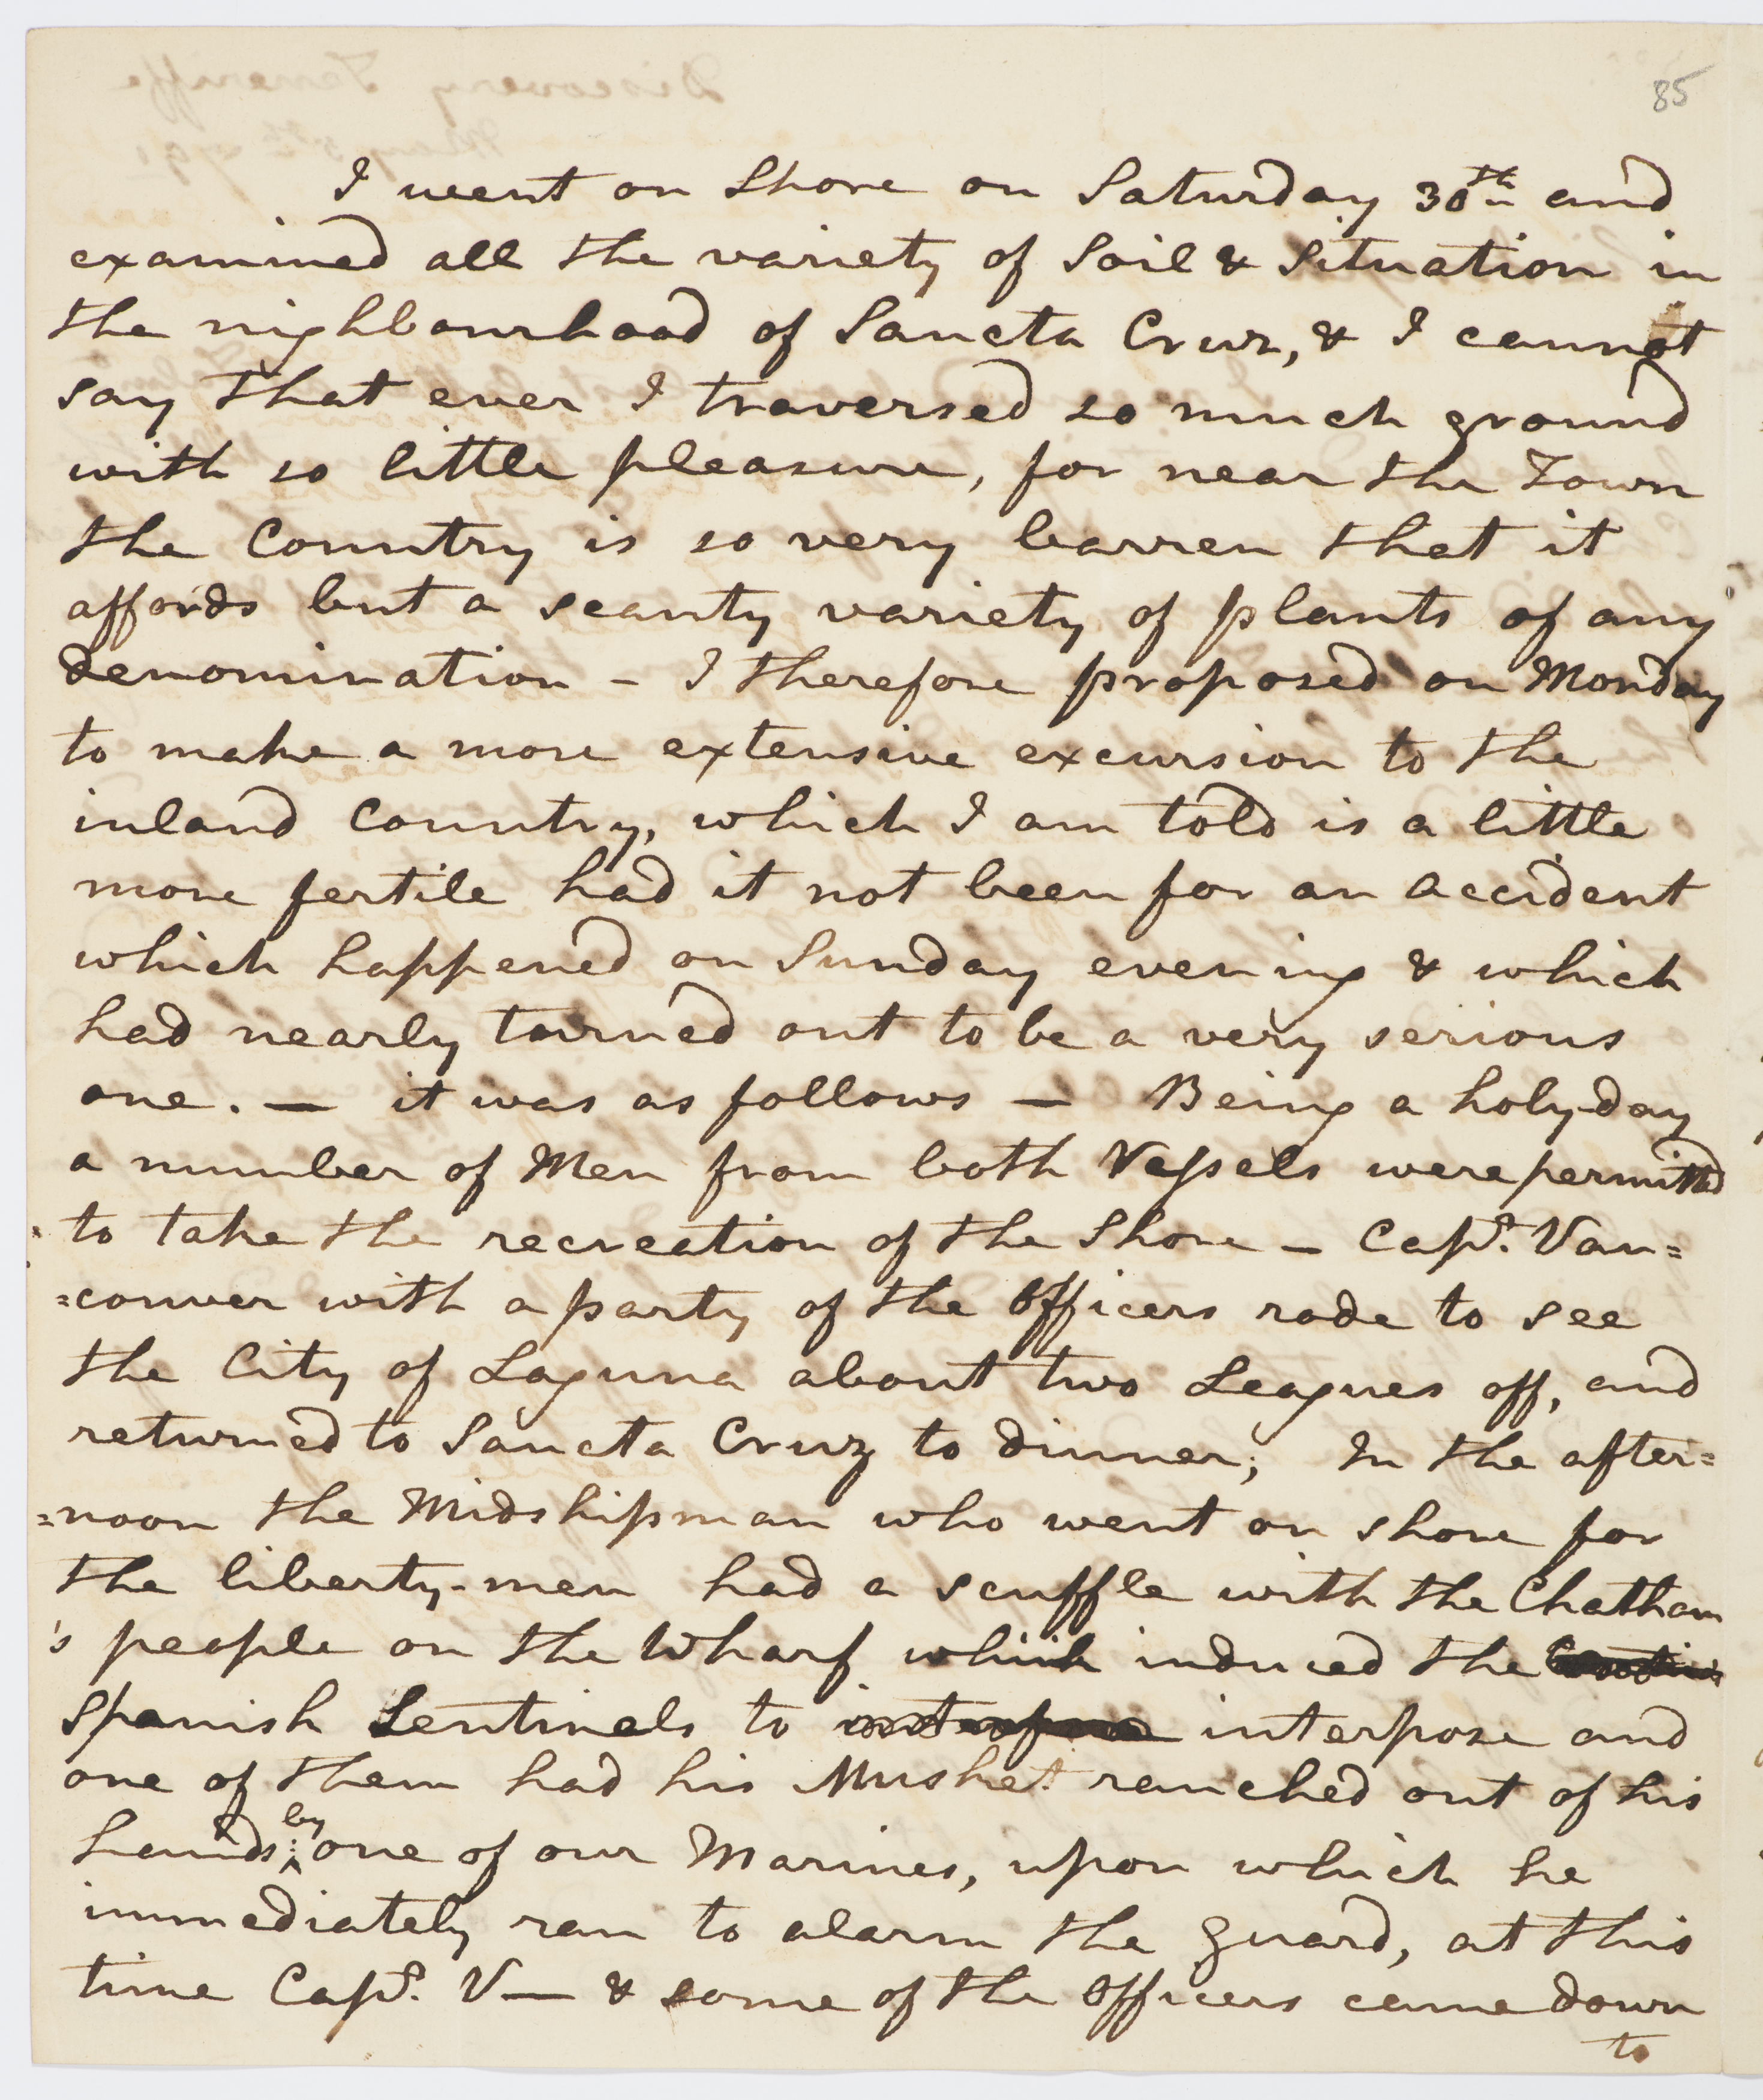 85
I went on Shore on Saturday 30th and
examined all the variety of Soil & Situation in
the nighbourhood of Sancta Cruz, & I cannot
say that ever I traversed so much ground
with so little pleasure, for near the Town
the Country is so very barren that it
affords but a scanty variety of plants of any
denomination - I therefore proposed on Monday
to make a more extensive excursion to the
inland Country, which I am told is a little
more fertile had it not been for an accident
which happened on Sunday evening & which
had nearly turned out to be a very serious
one. — it was as follows — Being a holy-day
a number of Men from both Vessels were permitted
to take the recreation of the Shore — Capt. Van=
=couver with a party of the Officers rode to see
the City of Laguna about two Leagues off, and
returned to Sancta Cruz to dinner; In the after=
=noon the Midshipman who went on shore for
the liberty-men had a scuffle with the Chatham
's people on the Wharf which induced the
Spanish Sentinels to interpose and
one of them had his Musket ranched out of his
hands; by one of our Marines, upon which he
immediately ran to alarm the guard, at this
time Capt. V— & some of the Officers came down
to